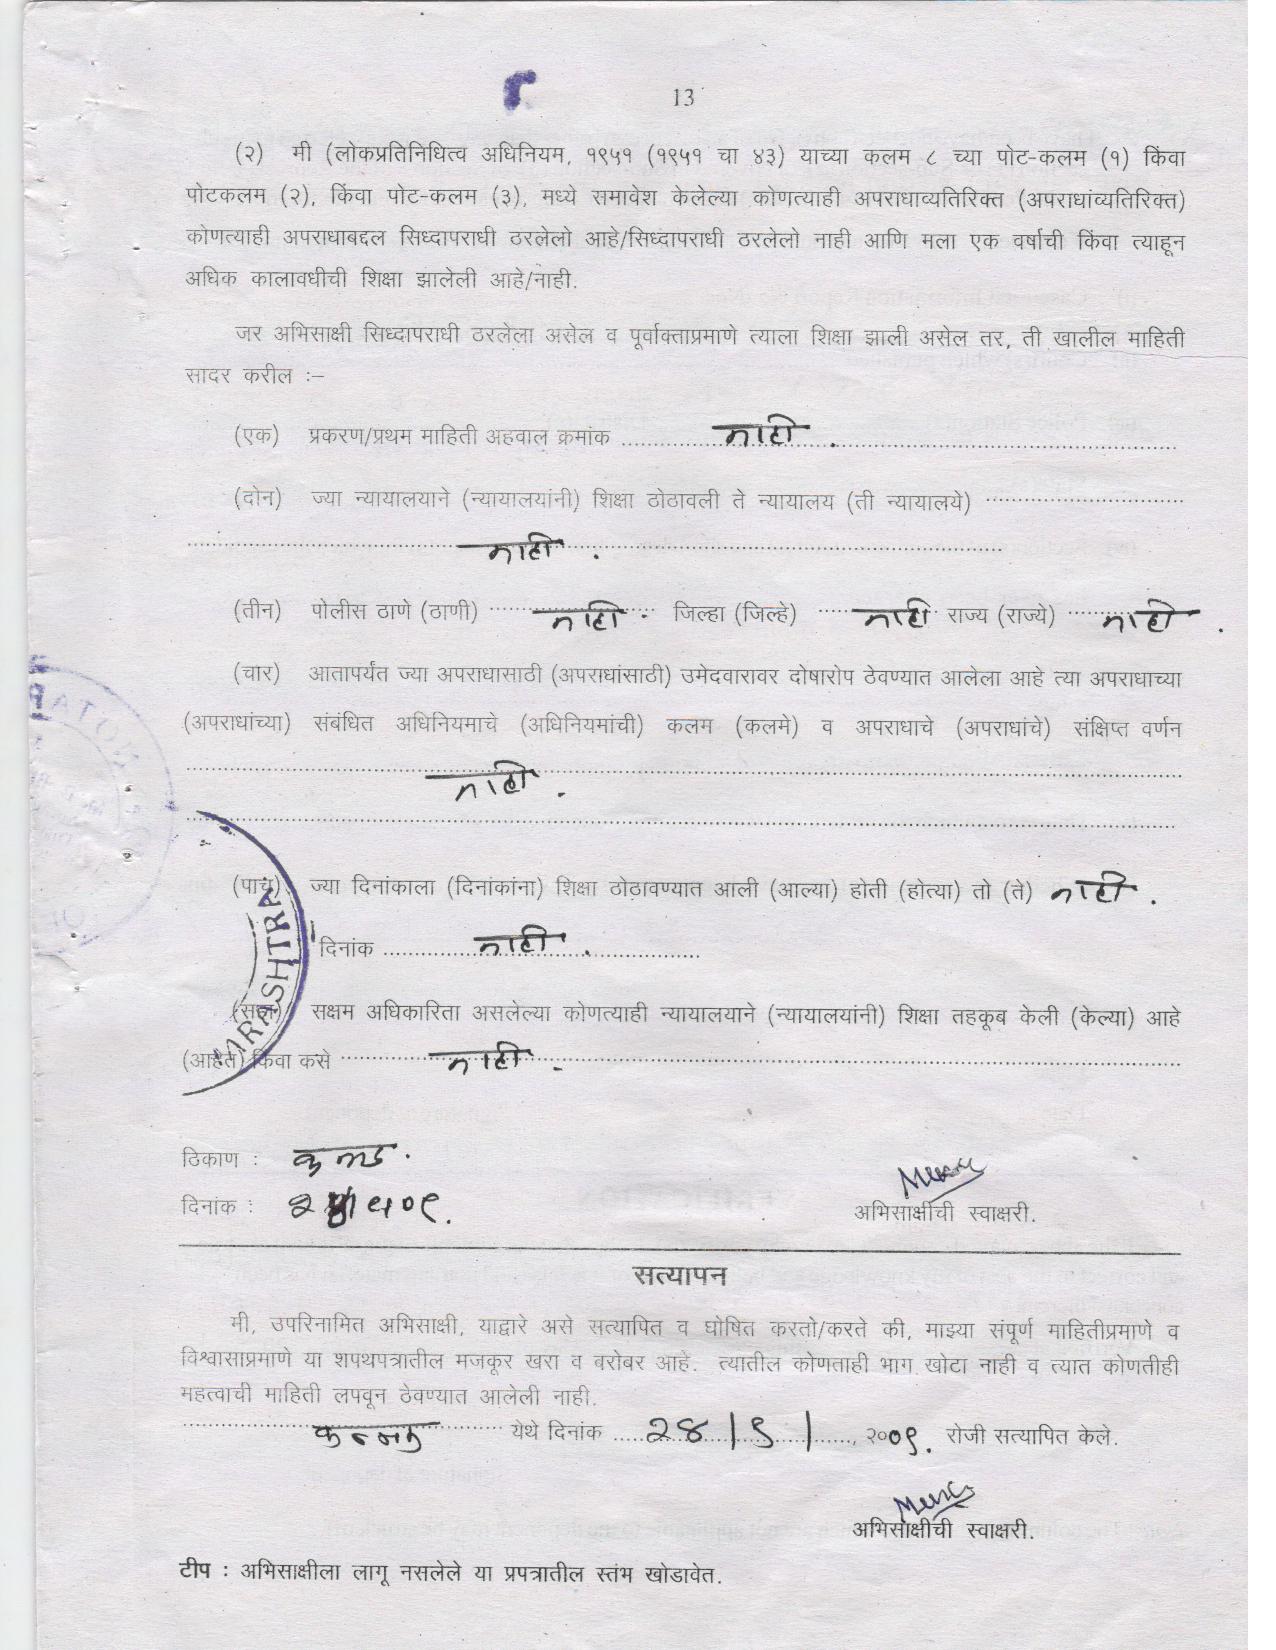 13
(२) मी (लोकप्रतिनिधित्व अधिनियम, १९५१ (१९५१ चा ४३) याच्या कलम ८ च्या पोट-कलम (१) किंवा
पोटकलम (२), किंवा पोट-कलम (३), मध्ये समावेश केलेल्या कोणत्याही अपराधाव्यतिरिक्त (अपराधांव्यतिरिक्त)
कोणत्याही अपराधाबद्दल सिध्दापराधी ठरलेलो आहे/सिध्दापराधी ठरलेलो नाही आणि मला एक वर्षाची किंवा त्याहून
अधिक कालावधीची शिक्षा झालेली आहे/नाही.
जर अभिसाक्षी सिध्दापराधी ठरलेला असेल व पूर्वाक्ताप्रमाणे त्याला शिक्षा झाली असेल तर, ती खालील माहिती
सादर करील :–
(एक) प्रकरण/प्रथम माहिती अहवाल क्रमांक ........ नाही . ........
(दोन) ज्या न्यायालयाने (न्यायालयांनी) शिक्षा ठोठावली ते न्यायालय (ती न्यायालये) ........
........ नाही . ........
(तीन) पोलीस ठाणे (ठाणी) ........ नाही . जिल्हा (जिल्हे) ........ नाही राज्य (राज्ये) ........ नाही .
(चार) आतापर्यंत ज्या अपराधासाठी (अपराधांसाठी) उमेदवारावर दोषारोप ठेवण्यात आलेला आहे त्या अपराधाच्या
(अपराधांच्या) संबंधित अधिनियमाचे (अधिनियमांची) कलम (कलमे) व अपराधाचे (अपराधांचे) संक्षिप्त वर्णन
........ नाही . ........
(पाच) ज्या दिनांकाला (दिनांकांना) शिक्षा ठोठावण्यात आली (आल्या) होती (होत्या) तो (ते) नाही .
दिनांक ........ नाही . ........
सक्षम अधिकारिता असलेल्या कोणत्याही न्यायालयाने (न्यायालयांनी) शिक्षा तहकूब केली (केल्या) आहे
(आहेत) किंवा कसे ........ नाही . ........
ARASHTRA
ठिकाण :
दिनांक :
अभिसाक्षीची स्वाक्षरी.
सत्यापन
मी, उपरिनामित अभिसाक्षी, याद्वारे असे सत्यापित व घोषित करतो/करते की, माझ्या संपूर्ण माहितीप्रमाणे व
विश्वासाप्रमाणे या शपथपत्रातील मजकूर खरा व बरोबर आहे. त्यातील कोणताही भाग खोटा नाही व त्यात कोणतीही
महत्वाची माहिती लपवून ठेवण्यात आलेली नाही.
........ कन्नड ........ येथे दिनांक ..... २४/९/ ....., २००९. रोजी सत्यापित केले.
अभिसाक्षीची स्वाक्षरी.
टीप : अभिसाक्षीला लागू नसलेले या प्रपत्रातील स्तंभ खोडावेत.